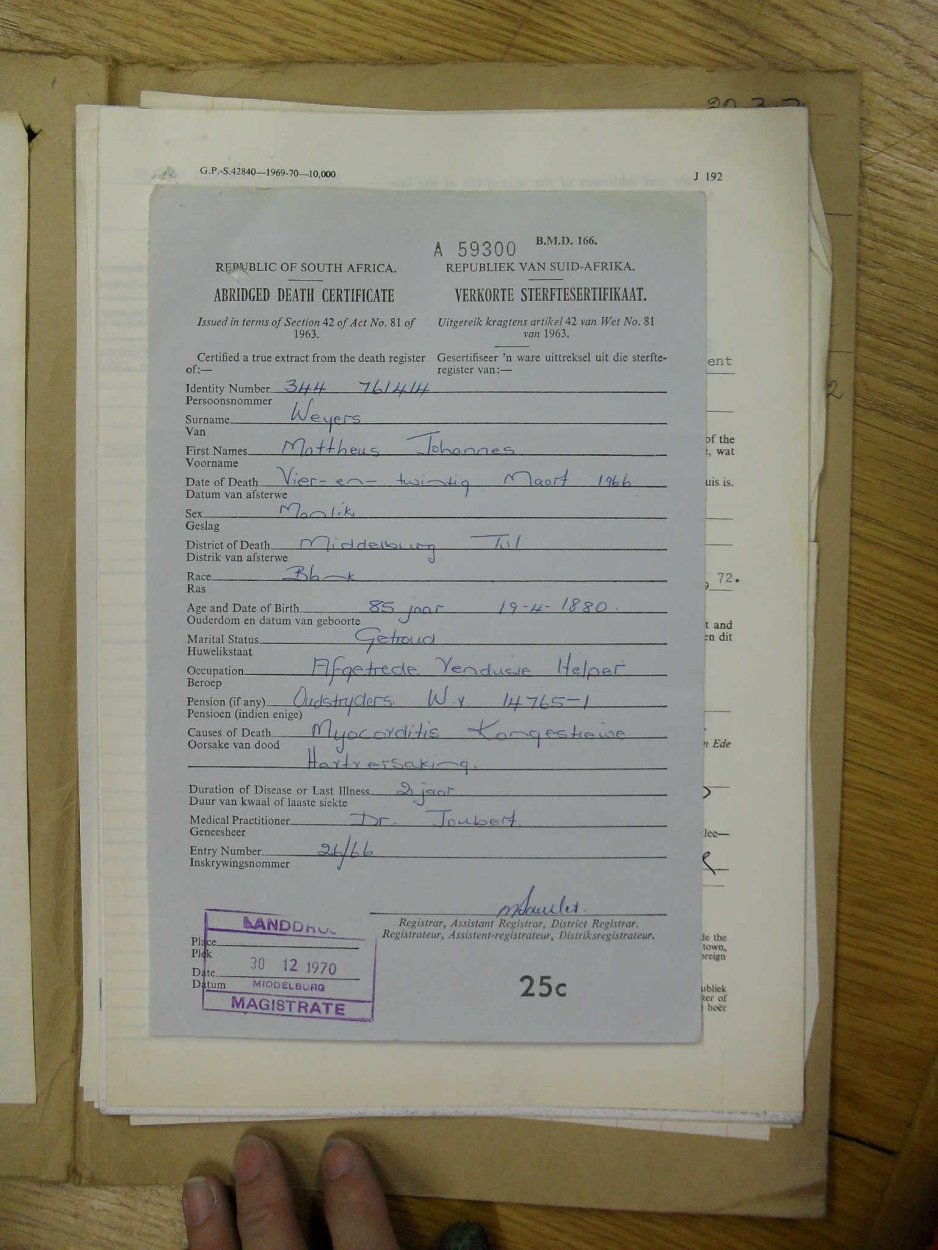 G.P.-S.42840—1969-70—10,000
J 192
A 59300
B.M.D. 166.
REPUBLIC OF SOUTH AFRICA.
REPUBLIEK VAN SUID-AFRIKA.
ABRIDGED DEATH CERTIFICATE
VERKORTE STERFTESERTIFIKAAT.
Issued in terms of Section 42 of Act No. 81 of
1963.
Uitgereik kragtens artikel 42 van Wet No. 81
van 1963.
Certified a true extract from the death register
of:—
Gesertifiseer 'n ware uittreksel uit die sterfte-
register van:—
Identity Number 344 761414
Persoonsnommer
Surname Weyers
Van
First Names Mattheus Johannes
Voorname
Date of Death Vier-en-twintig Maart 1966
Datum van afsterwe
Sex Manlik
Geslag
District of Death Middelburg Tvl
Distrik van afsterwe
Race Blank
Ras
Age and Date of Birth 85 jaar 19-4-1880.
Ouderdom en datum van geboorte
Marital Status Getroud
Huwelikstaat
Occupation Afgetrede Vendusie Helper
Beroep
Pension (if any) Oudstryders W.v 14765-1
Pensioen (indien enige)
Causes of Death Myocarditis Kongestiewe
Oorsake van dood
Hartversaking.
Duration of Disease or Last Illness 2 jaar
Duur van kwaal of laaste siekte
Medical Practitioner Dr. Joubert
Geneesheer
Entry Number 26/66
Inskrywingsnommer
Registrar, Assistant Registrar, District Registrar.
Registrateur, Assistent-registrateur, Distriksregistrateur.
LANDDROS
Place
Plek
Date 30 12 1970
Datum MIDDELBURG
MAGISTRATE
25c
ent
of the
, wat
uis is.
72.
t and
en dit
n Ede
lee—
de the
town,
oreign
ubliek
ter of
hoër